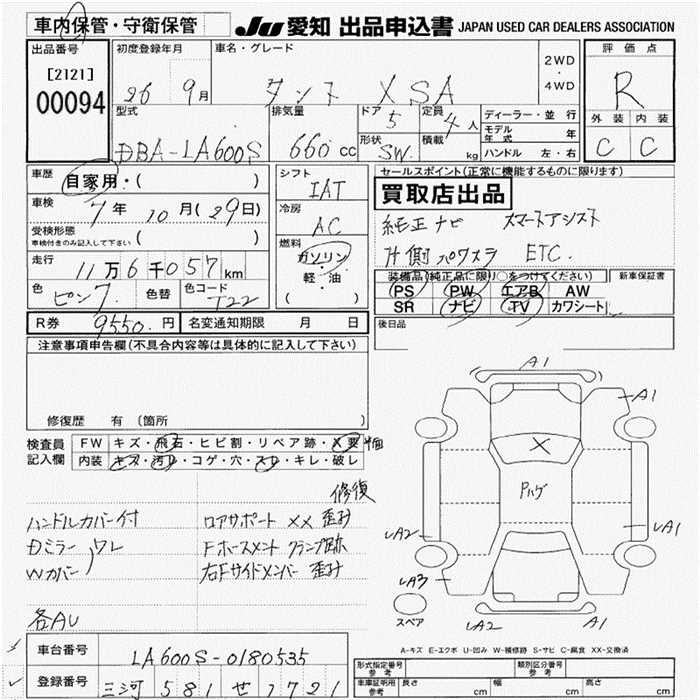 車内保管・守衛保管
JU 愛知 出品申込書 JAPAN USED CAR DEALERS ASSOCIATION
出品番号
[2121]
00094
初度登録年月
26 9月
車名・グレード
タント X SA
2WD
・
4WD
評価点
R
外装 内装
C C
型式
DBA-LA600S
排気量
660cc
ドア
5
形状
SW
定員
4人
積載
kg
ディーラー・並行
モデル年式 年
ハンドル 左・右
車歴
自家用・( )
車検
7年 10月(29日)
受検形態
車検付きのみ記入して下さい ( )
走行
11万6千057km
色
ピンク
色替
色コード
T22
シフト
IAT
冷房
AC
燃料
ガソリン
軽・油
( )
セールスポイント(正常に機能するものに限ります)
買取店出品
純正ナビ スマートアシスト
片側パワスラ ETC.
装備品(純正品に限り○をつけてください)
PS PW エアB AW
SR ナビ TV カワシート
新車保証書
後日品
R券 9550円 名変通知期限 月 日
注意事項申告欄(不具合内容等は具体的に記入して下さい)
修復歴 有(箇所 )
検査員記入欄
FW キズ・飛石・ヒビ割・リペア跡・X要
内装 キズ・汚れ・コゲ・穴・スレ・キレ・破レ
修復
ハンドルカバー付 ロアサポート XX 歪み
Dミラー ワレ Fホースメント クランプ跡
Wカバー 右Fサイドメンバー 歪み
各AU
車台番号 LA600S-0180535
登録番号 三河 581 せ 1721
A1
A1
X
Pハゲ
A2
A1
A3
スペア
A2
A1
A-キズ E-エクボ U-凹み W-補修跡 S-サビ C-腐食 XX-交換済
形式指定番号 参考
類別区分番号 参考
車庫証明用 参考
長さ cm 幅 cm 高さ cm